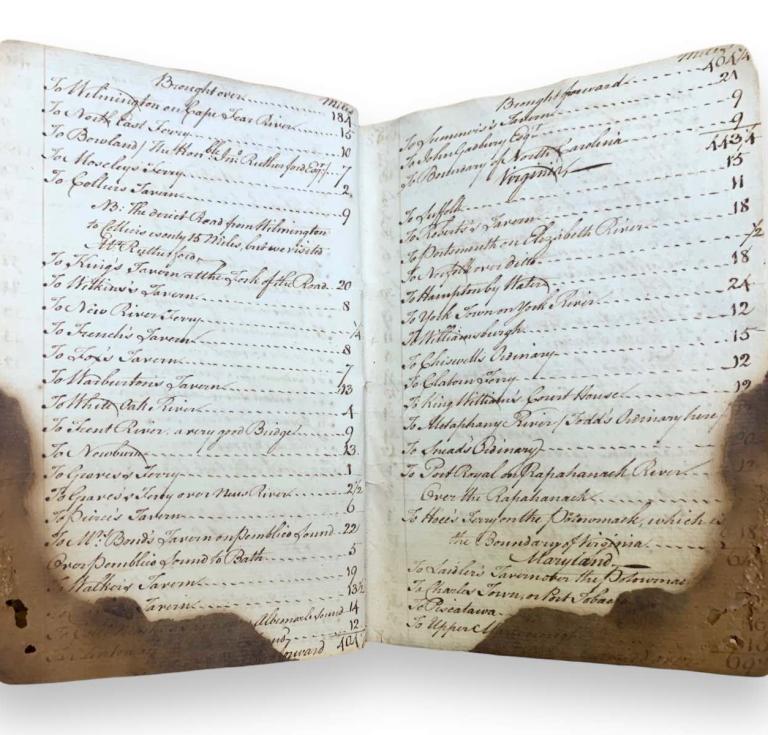 Brought over Miles
To Wilmington on Cape Fear River 184
To North East Ferry 15
To Bowland / the Honble. Jno. Rutherford Esqr. 10
To Moseleys Ferry 7
To Colliers Tavern 2
NB: The direct Road from Wilmington 9
to Colliers is only 18 Miles, but we visited
Mr. Rutherford
To King's Tavern at the Fork of the Road 20
To Wilkins's Tavern 8
To New River Ferry
To French's Tavern 1/4
To Fox's Tavern 8
To Warburtons Tavern 7
To White Oak River 13
To Trent River, a very good Bridge 4
To Newburn 9
To Graves's Ferry 13
To Graves's Ferry over Neus River 1
To Pierce's Tavern 2 1/2
To Mrs. Bonds Tavern on Pemblico Sound 6
Over Pemblico Sound to Bath 22
To Walkers Tavern 5
Tavern 19
13 1/2
Albemarle Sound 14
12
forward 404
Miles
Brought forward 404 1/4
To Sumner's Tavern 21
To John Gasbery Esqr. 9
To Boundary of North Carolina 9
443 1/4
Virginia
To Suffolk 15
To Roberts's Tavern 11
To Portsmouth on Elizabeth River 18
To Norfolk over ditto 1/2
To Hampton by Water 18
To York Town on York River 24
To Williamsburgh 12
To Chiswells Ordinary 15
To Claborn Ferry 12
To King William's Court House 12
To Metaphany River / Todd's Ordinary here
To Sneads Ordinary
To Port Royal on Rapahanack River
Over the Rapahanack
To Hoe's Ferry on the Potowmack, which is
the Boundary of Virginia
Maryland
To Laidler's Tavern over the Potowmac
To Charles Town, or Port Tobac
To Piscatawa
To Upper